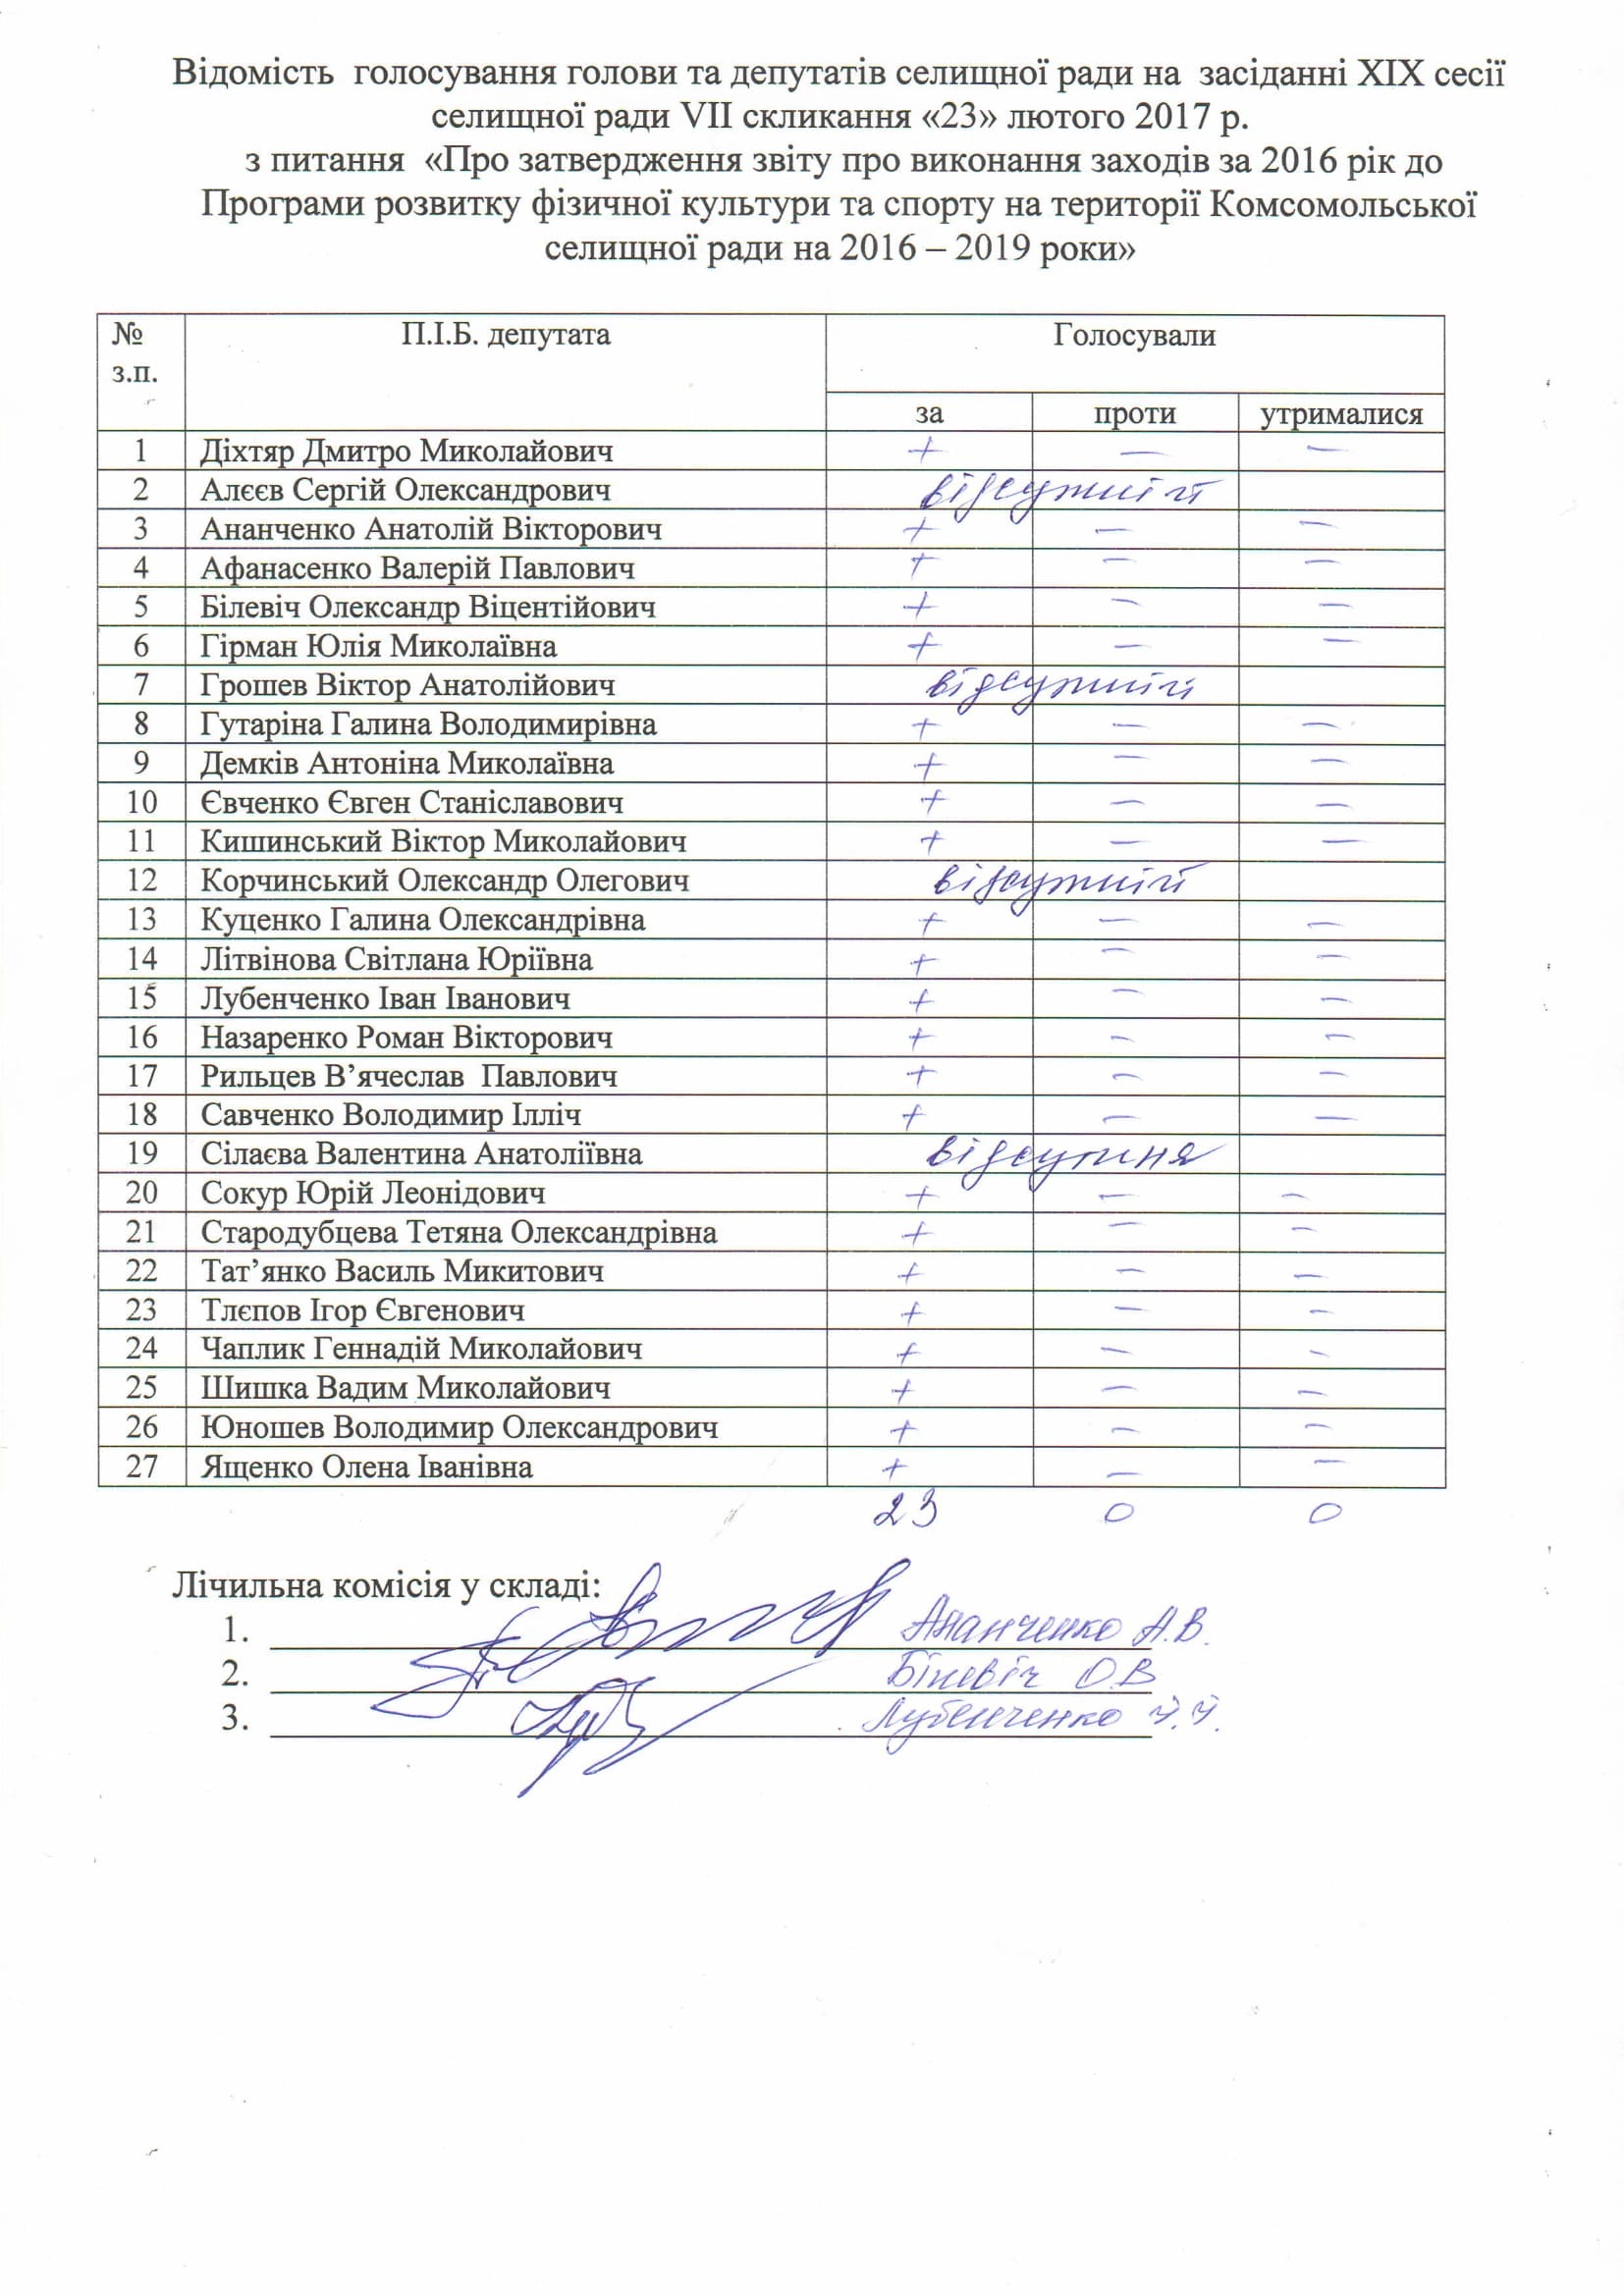 Відомість голосування голови та депутатів селищної ради на засіданні XIX сесії
селищної ради VII скликання «23» лютого 2017 р.
з питання «Про затвердження звіту про виконання заходів за 2016 рік до
Програми розвитку фізичної культури та спорту на території Комсомольської
селищної ради на 2016 – 2019 роки»
№ з.п. П.І.Б. депутата Голосували
за проти утрималися
1 Діхтяр Дмитро Миколайович + — —
2 Алєєв Сергій Олександрович відсутній
3 Ананченко Анатолій Вікторович + — —
4 Афанасенко Валерій Павлович + — —
5 Білевіч Олександр Віцентійович + — —
6 Гірман Юлія Миколаївна + — —
7 Грошев Віктор Анатолійович відсутній
8 Гутаріна Галина Володимирівна + — —
9 Демків Антоніна Миколаївна + — —
10 Євченко Євген Станіславович + — —
11 Кишинський Віктор Миколайович + — —
12 Корчинський Олександр Олегович відсутній
13 Куценко Галина Олександрівна + — —
14 Літвінова Світлана Юріївна + — —
15 Лубенченко Іван Іванович + — —
16 Назаренко Роман Вікторович + — —
17 Рильцев В’ячеслав Павлович + — —
18 Савченко Володимир Ілліч + — —
19 Сілаєва Валентина Анатоліївна відсутня
20 Сокур Юрій Леонідович + — —
21 Стародубцева Тетяна Олександрівна + — —
22 Тат’янко Василь Микитович + — —
23 Тлєпов Ігор Євгенович + — —
24 Чаплик Геннадій Миколайович + — —
25 Шишка Вадим Миколайович + — —
26 Юношев Володимир Олександрович + — —
27 Ященко Олена Іванівна + — —
23 0 0
Лічильна комісія у складі:
1. Ананченко А.В.
2. Білевіч О.В
3. Лубенченко І.І.